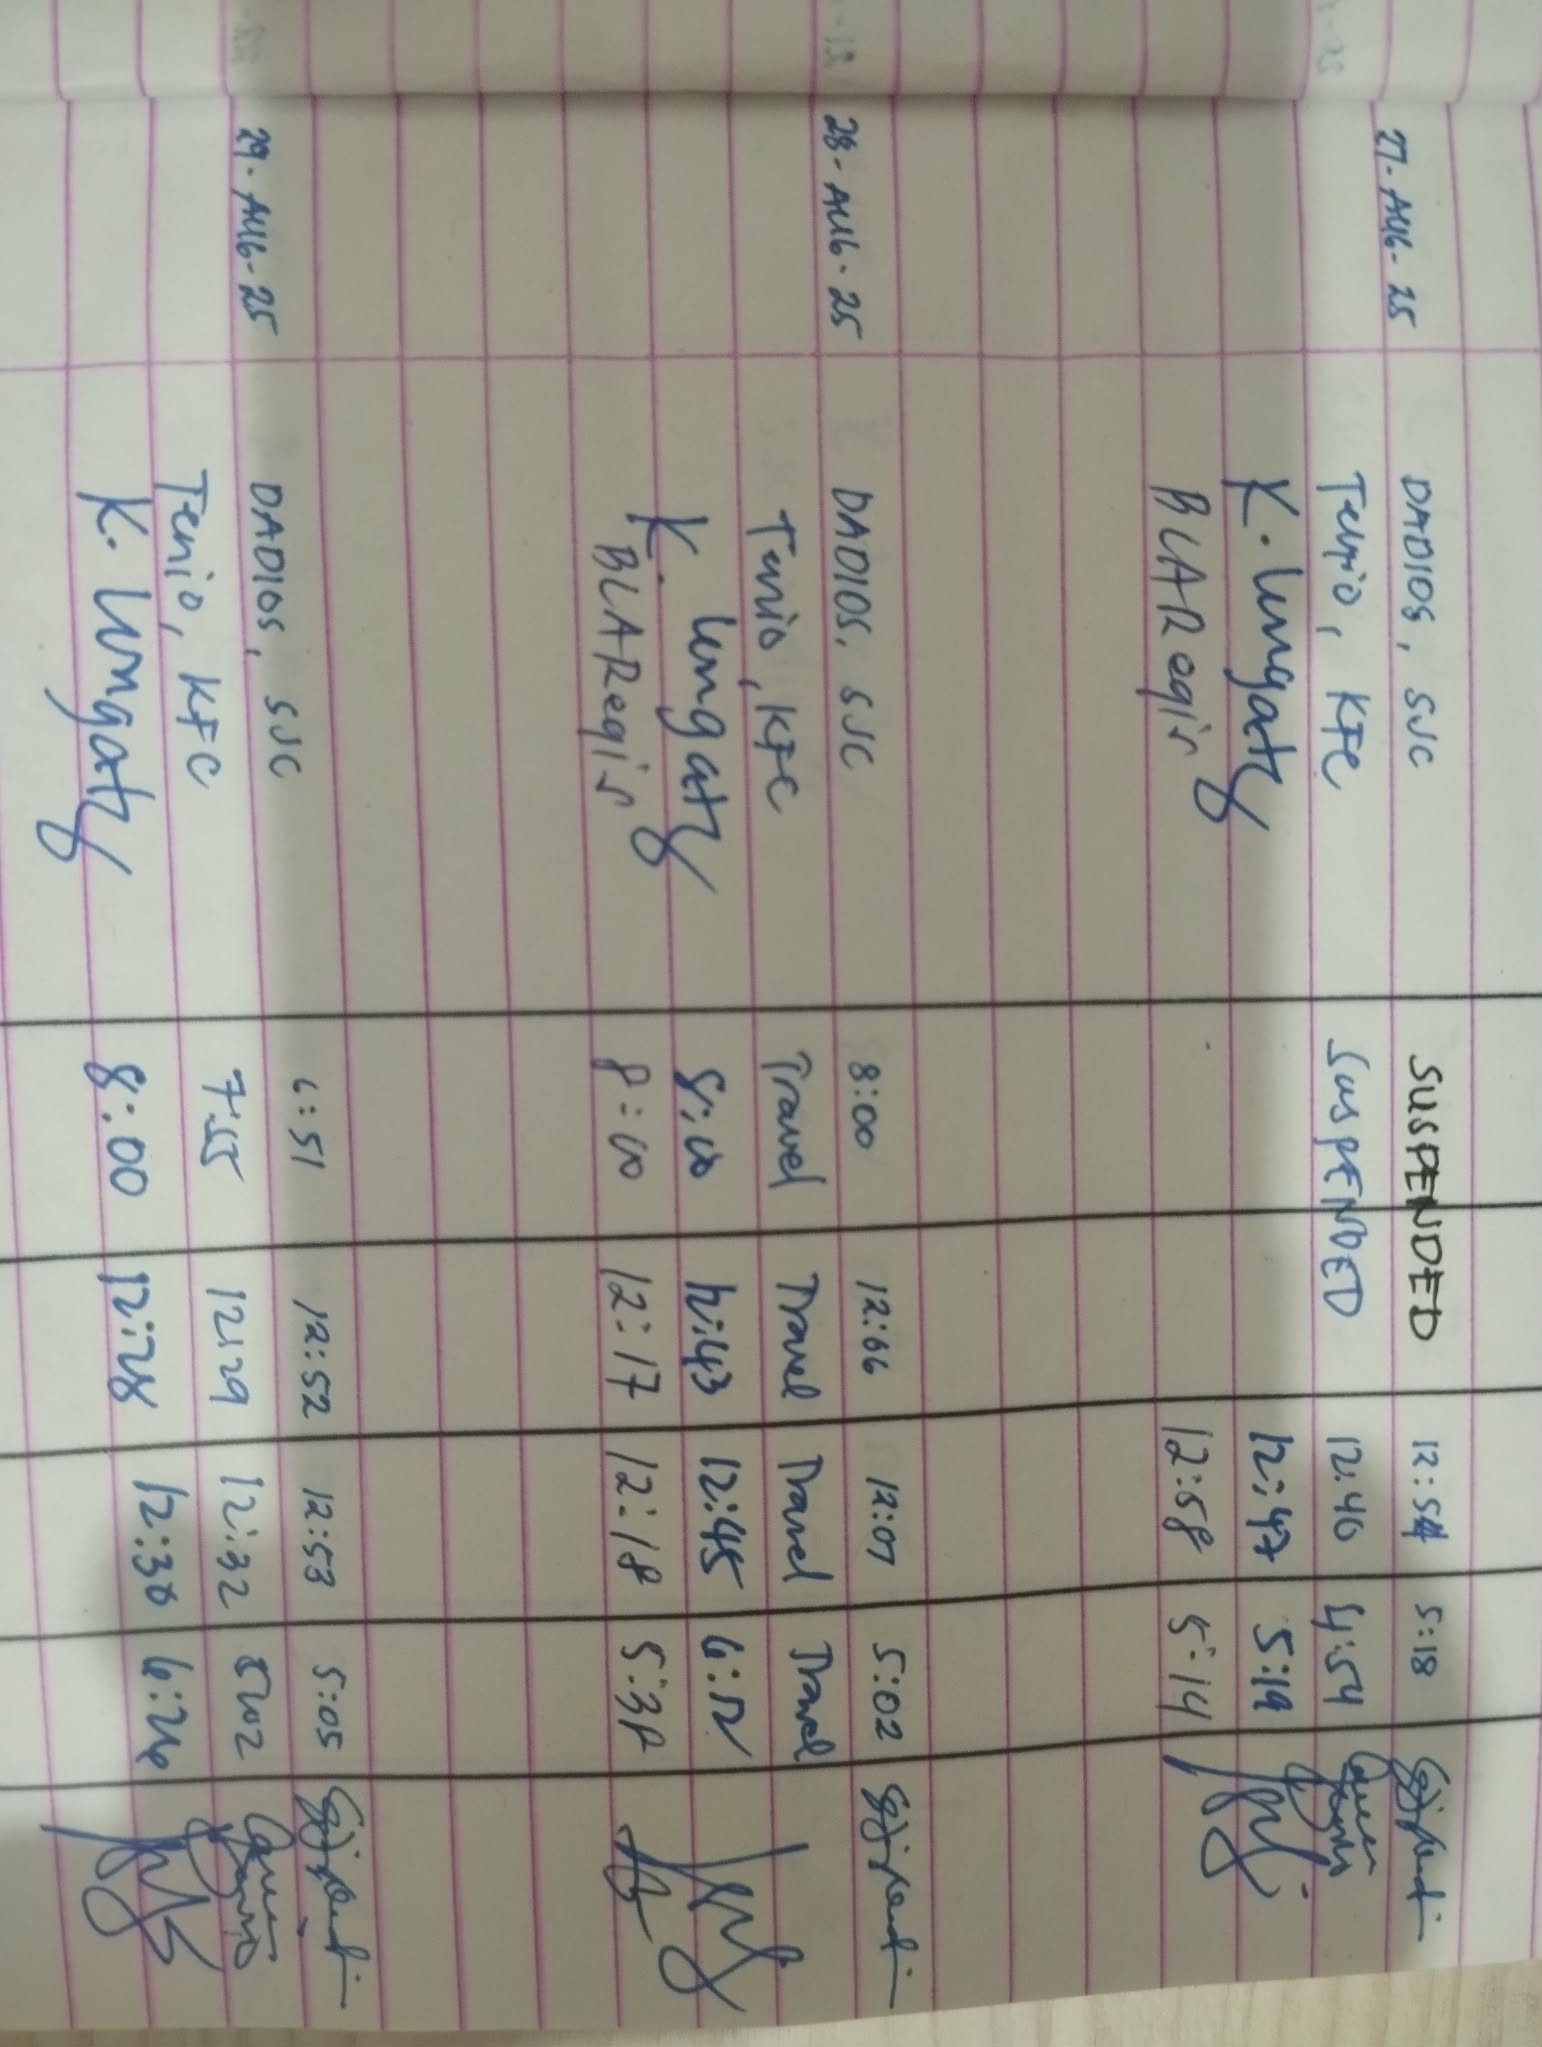 27-AUG-25 DADIOS, SJC SUSPENDED 12:54 5:18
Tenio, KFC SUSPENDED 12:40 4:54
K. Lungaty 12:47 5:19
BLAReqis 12:58 5:14
28-AUG-25 DADIOS, SJC 8:00 12:06 12:07 5:02
Tenio, KFC Travel Travel Travel Travel
K. Lungaty 8:00 12:43 12:45 6:12
BLAReqis 8:00 12:17 12:18 5:38
29-AUG-25 DADIOS, SJC 6:51 12:52 12:53 5:05
Tenio, KFC 7:55 12:29 12:32 5:02
K. Lungaty 8:00 12:28 12:30 6:26